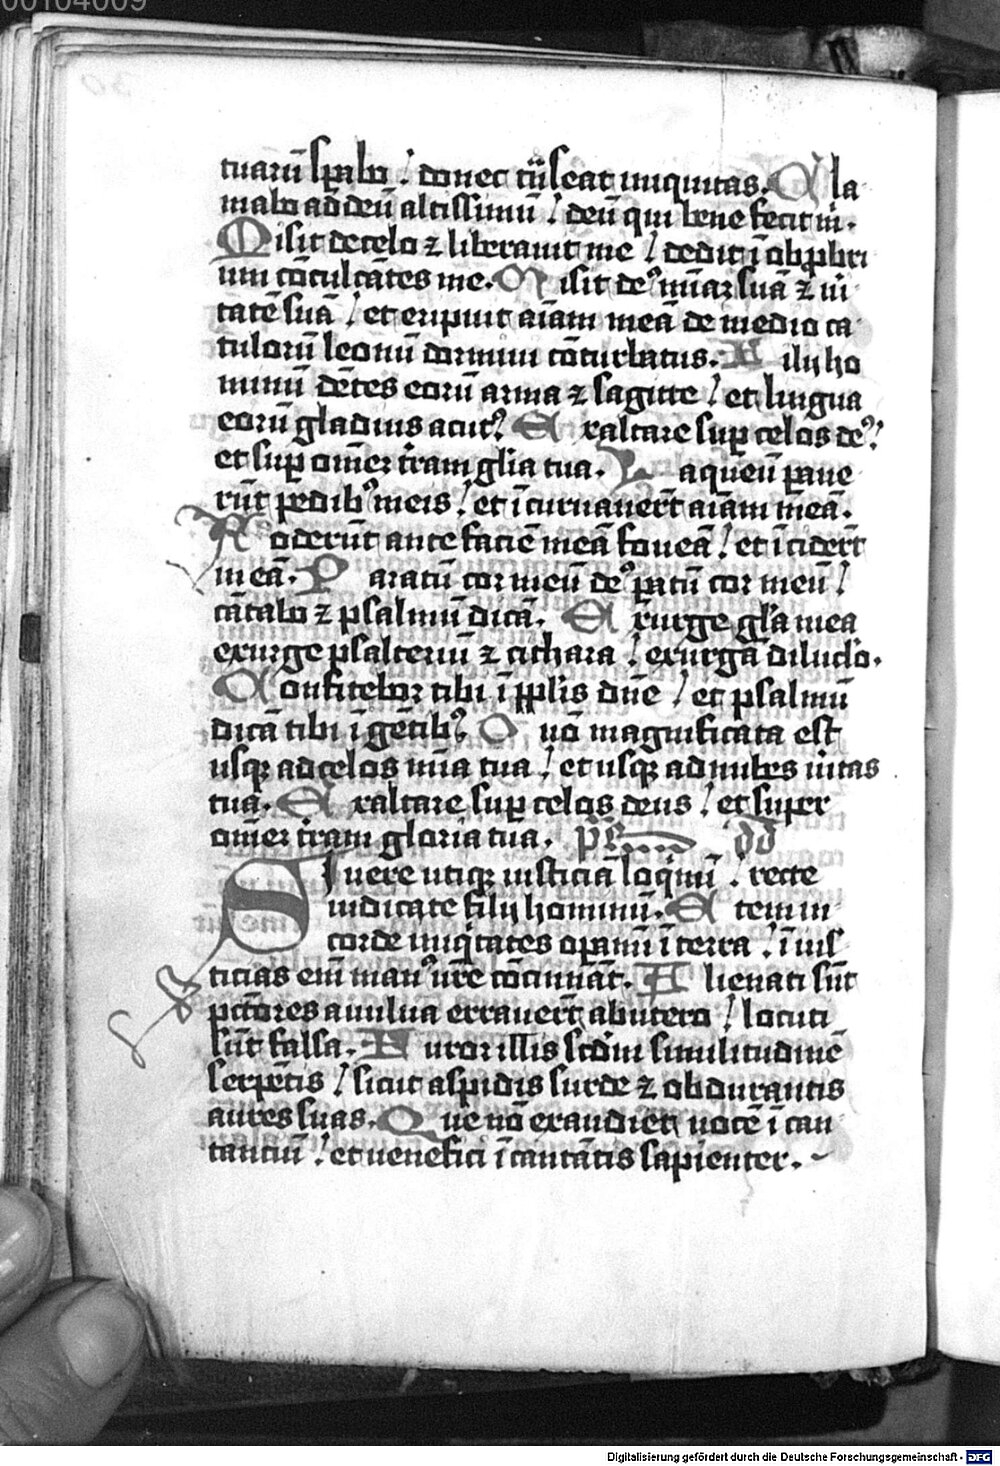 00104009
tuarū sꝑabo / donec trāseat iniquitas. Cla
mabo ad deū altissimū / deū qui bene fecit m̄.
Misit de celo ⁊ liberauit me / dedit ī obꝓbri
um cōculcātes me. Misit deꝰ miāꝫ suā ⁊ ui
tatē suā / et eripuit aīam meā de medio ca
tulorū leonū dormiui cōturbatus. Filij ho
minū dētes eorū arma ⁊ sagitte / et lingua
eorū gladius acutꝰ. Exaltare suꝑ celos deꝰ /
et suꝑ omēꝫ tram glīa tua. Laqueū paue
rūt pedibꝰ meis / et īcuruauer̄t aīam meā.
Foderūt ante faciē meā foueā / et īcider̄t
in eā. Paratū cor meū deꝰ paratū cor meū /
cātabo ⁊ psalmū dicā. Exurge gla mea
exurge psalteriū ⁊ cithara / exurgā diluclo.
Confitebor tibi ī pplis dn̄e / et psalmū
dicā tibi ī gētibꝰ. Qm̄ magnificata est
usqꝫ ad celos mīa tua / et usqꝫ ad nubes uitas
tua. Exaltare suꝑ celos deus / et super
omēꝫ tram gloria tua.
Si uere utiqꝫ iusticiā loqmī / recte
iudicate filij hominū. Etem in
corde iniqtates oꝑamī ī terra / ī ius
ticias em̄ manꝰ ur̄e cōcinnāt. Alienati sūt
pctōres a uulua errauer̄t ab utero / locuti
sūt falsa. Furor illis scdm similitudinē
serpētis / sicut aspidis surde ⁊ obdurantis
aures suas. Que nō exaudiet uocē ī can
tanciū / et uenefici ī cantātis sapienter.
Digitalisierung gefördert durch die Deutsche Forschungsgemeinschaft - DFG